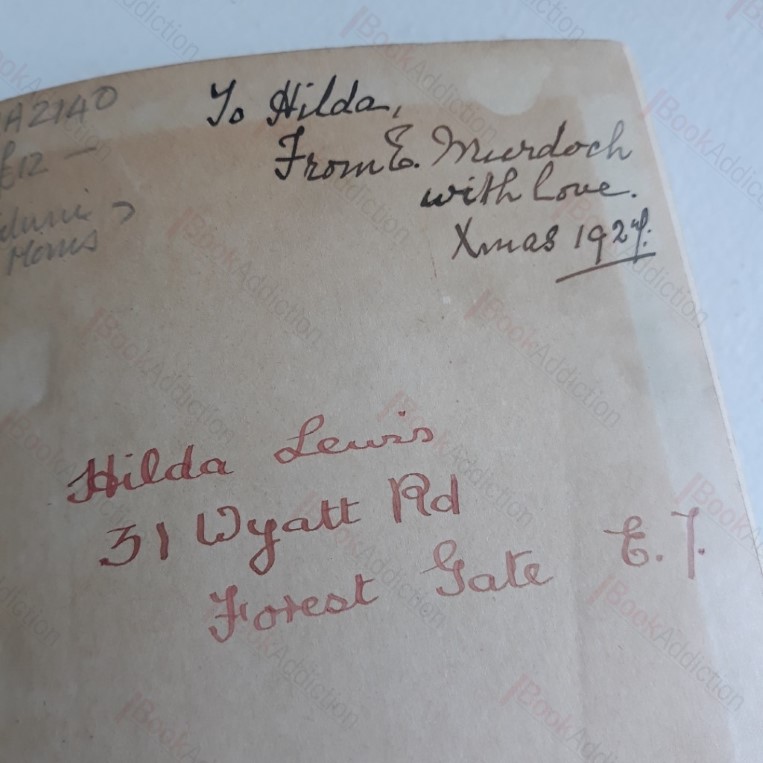 A2140
£12 —
To Hilda,
From E. Murdoch
with love.
Xmas 1924.
Hilda Lewis
31 Wyatt Rd
Forest Gate E.7.
BookAddiction